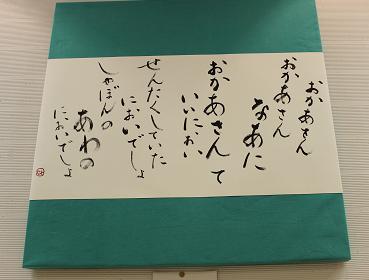 おかあさん
おかあさん
なあに
おかあさんて
いいにおい
せんたくしていた
においでしょ
しゃぼんの
あわの
においでしょ